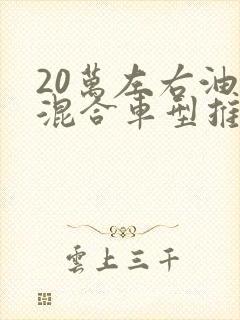 20萬左右油
混合車型推
雲上三千